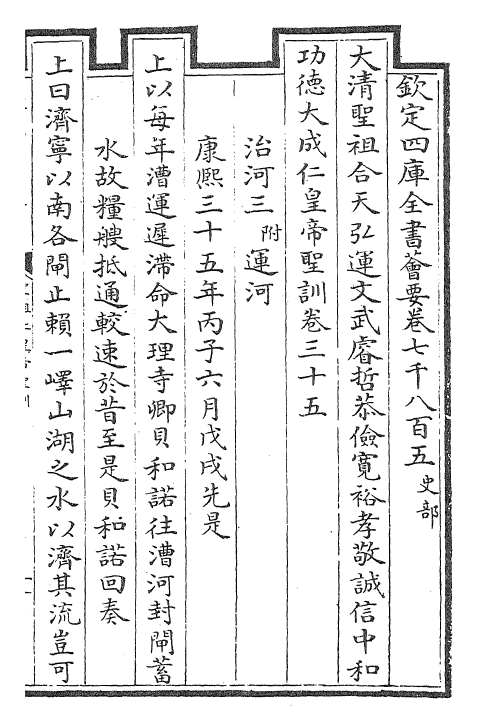 欽定四庫全書薈要卷七千八百五 史部
大清聖祖合天弘運文武睿哲恭儉寬裕孝敬誠信中和
功德大成仁皇帝聖訓卷三十五
治河三 附運河
康熙三十五年丙子六月戊戌先是
上以每年漕運遲滯命大理寺卿貝和諾往漕河封閘蓄
水故糧艘抵通較速於昔至是貝和諾回奏
上曰濟寧以南各閘止賴一嶧山湖之水以濟其流豈可